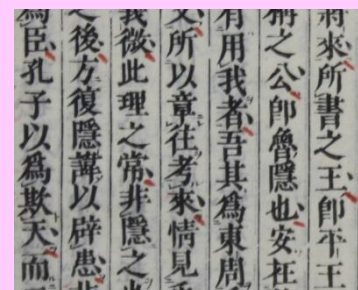 將來所書之王卽平王
稱之公卽魯隱也安在
有用我者吾其爲東周
文所以章往考來情見
義微此理之常非隱之
之後方復隱諱以辟患
爲臣孔子以爲欺天而